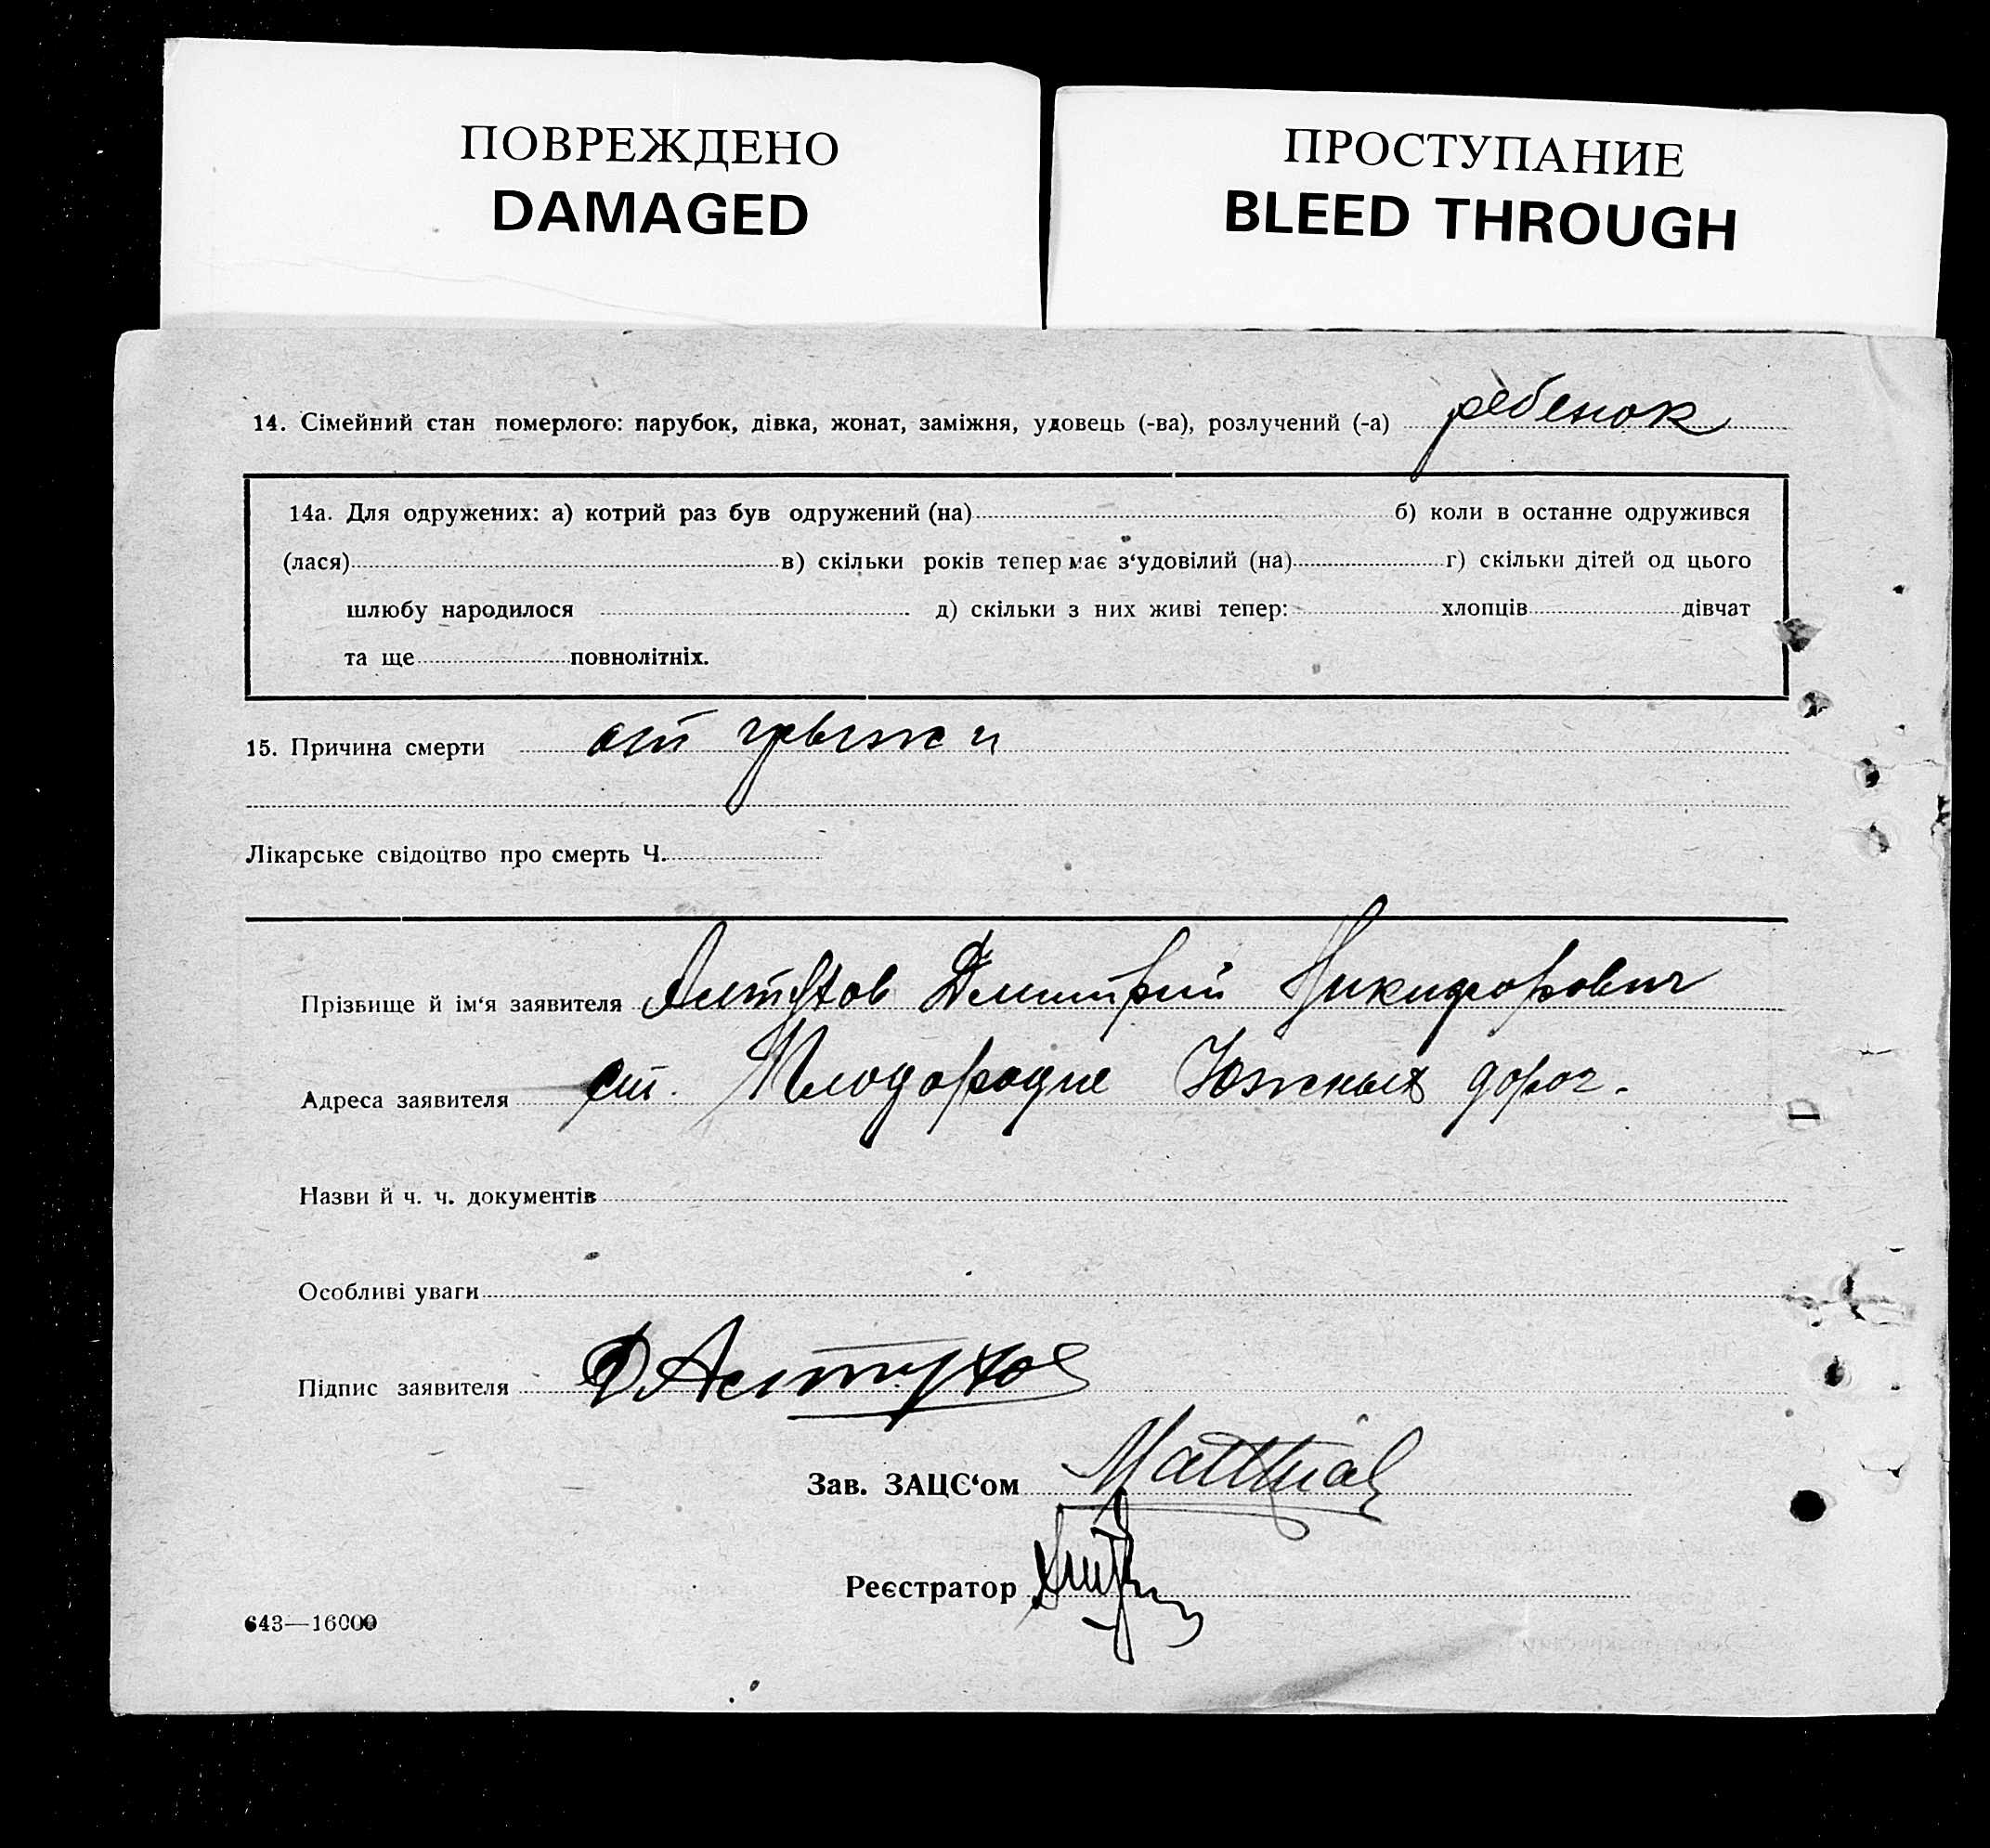 ПОВРЕЖДЕНО
DAMAGED
ПРОСТУПАНИЕ
BLEED THROUGH
14. Сімейний стан померлого: парубок, дівка, жонат, заміжня, удовець (-ва), розлучений (-а) ребенок
14а. Для одружених: а) котрий раз був одружений (на) б) коли в останнє одружився
(лася) в) скільки років тепер має з‘удовілий (на) г) скільки дітей од цього
шлюбу народилося д) скільки з них живі тепер: хлопців дівчат
та ще повнолітніх.
15. Причина смерти от грыжи
Лікарське свідоцтво про смерть Ч.
Прізвище й ім‘я заявителя Алтухов Дмитрий Никифорович
Адреса заявителя ст. Плодородие Южных дорог.
Назви й ч. ч. документів
Особливі уваги
Підпис заявителя Д Алтухов
Зав. ЗАЦС‘ом Matthias
Реєстратор
643—16000